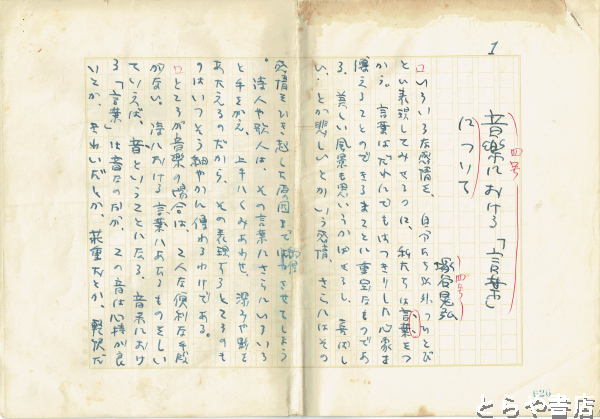 1
音楽における「言葉」
について
四号
塚谷晃弘
四号
いろいろな感情を、自分たち以外のひとび
とに表現してみせるのに、私たちは言葉をつ
かう。言葉はだれにでもはっきりした心象を
傳えることのできるまことに重宝なものであ
る。美しい風景も思いうかばせるし、喜ばし
い、とか悲しいとかいう感情、さらにはその
感情をひき起した原因まで納得させてしまう
。詩人や歌人は、その言葉にさらにいろいろ
と手をかえ、上手にくみあわせ、深みや勢を
あたえるのだから、その表現するところのも
のはいっそう細やかに傳わるわけである。
ところが音楽の場合は、こんな便利な手段
がない。詩における言葉にあたるものをしい
ていえば、音ということになる。音楽におけ
る「言葉」は音なのだが、この音は心持が良
いとか、きれいだとか、荘重だとか、軽快だ
626
とらや書店